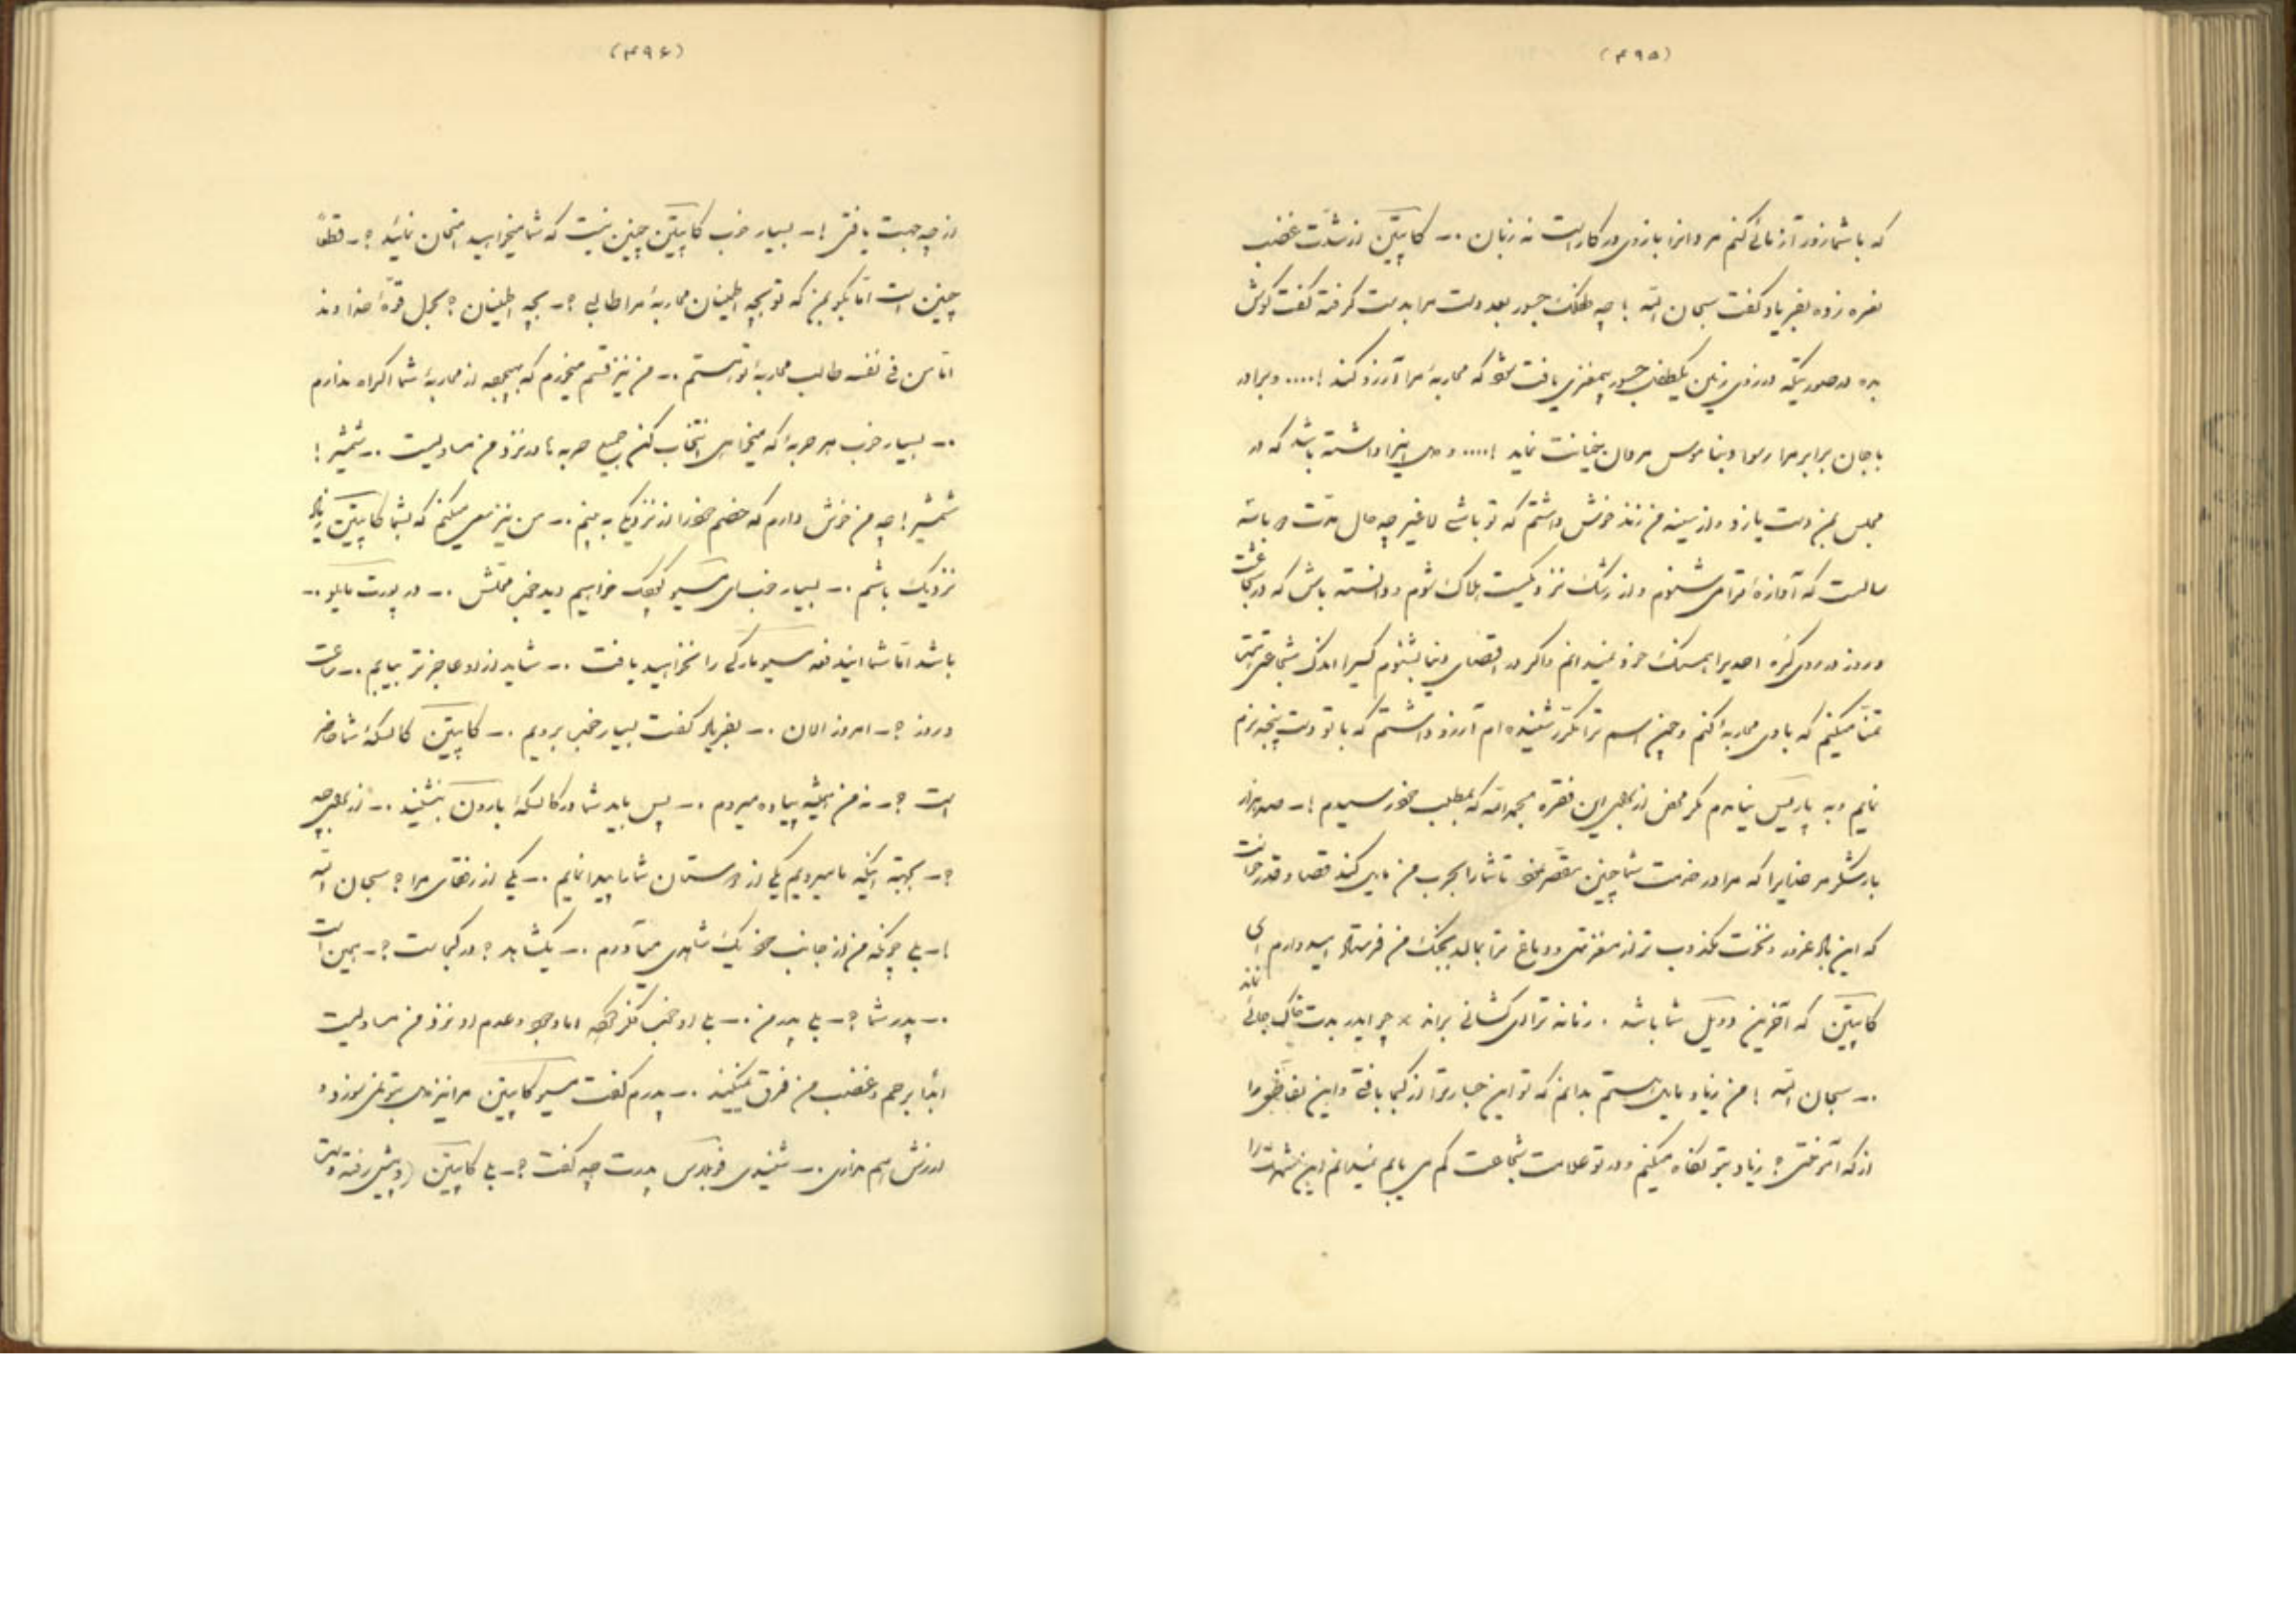 (۴۹۵)
که با شما زور آزمائی کنم مردانرا بازوی در کار است نه زبان .- کاپیتن از شدّت غضب
نعره زده بفریاد گفت سبحان الله ! چه طفلک جسور بعد دست مرا بدست گرفته گفت گوش
بده در صورتیکه در روی زمین یکطفل جسور بیمغزی یافت شود که محاربهٔ مرا آرزو کند !.... و برادر
با جان برابر مرا رسوا و بناموس مردمان خیانت نماید !....
مجلس بمن دست یازد و از سینه من زند خوش داشتم که تو باشی لا غیر چه حال مدّت
سالست که آوازهٔ ترا می شنوم و از رشک نزدیکست هلاک شوم و دانسته باش که در شجاعت
در روی کره احدیرا همسنک خود نمیدانم و اگر در اقصای دنیا بشنوم کسیرا اندک شجاعتی
تمنّا میکنم که با وی محاربه کنم و چون اسم ترا مکرّر شنیده ام آرزو داشتم که با تو دست پنجه نرم
نمایم و به پاریس نیامدم مگر محض از برای این فقره بحمدالله که بمطلب خود رسیدم !- صد هزار
بار شکر مر خدایرا که مرا در خدمت شما چنین مقصّر نمود تا شما را بحرب من مایل کند قضا و قدر
که این باد غرور و نخوت مکذوب ترا از مغز تهی و دماغ ترا بمالد بجنک من فرستاد امیدوارم ای
کاپیتن که آخرین دوئیل شما باشد . زمانه ترا می کشانی براند × چرا
.- سبحان الله ! من زیاد مایل هستم بدانم که تو این جسارترا از کجا یافتی و این
از که آموختی ؟ زیاد بتو نگاه میکنم و در تو علامت شجاعت کم می یابم نمیدانم این شهرت را
(۴۹۶)
از چه جهت یافتی !- بسیار خوب کاپیتن چنین نیست که شما میخواهید امتحان نمائید ؟- قطعاً
چنین است امّا بگو بمن که تو بچه اطمینان محاربهٔ مرا طالبی ؟- بچه اطمینان ؟ بحول قوّهٔ خداوند
امّا من فی نفسه طالب محاربهٔ تو هستم .- من نیز قسم میخورم که بهیچوجه از محاربهٔ شما اکراه ندارم
.- بسیار خوب هر حربهٔ که میخواهی انتخاب کن جمیع حربه ها در نزد من مساویست .- شمشیر !
شمشیر ! چه من خوش دارم که خصم خود را از نزدیک به بینم .- من نیز سعی میکنم که بشما کاپیتن زیاد
نزدیک باشم .- بسیار خوب ای مسیو کوچک خواهیم دید خوب .- در پورت مایلو .-
باشد امّا شما ایندفعه مسیو مارکی را نخواهید یافت .- شاید از او عاجزتر بیابم .- ساعت
و روز ؟- امروز الان .- بفریاد گفت بسیار خوب برویم .- کاپیتن کالسکهٔ شما حاضر
است ؟- نه من همیشه پیاده میروم .- پس باید شما در کالسکهٔ بارون بنشینید .- از برای چه
؟- بجهة اینکه ما میرویم یکی از دوستان شما را پیدا نمایم .- یکی از رفقای مرا ؟ سبحان الله
!- بلی چونکه من از جانب خود یک شاهدی میآورم .- یک شاهد ؟ در کجاست ؟- همین است
.- پدر شما ؟- بلی پدر من .- بلی او خوب فکر نموده امّا وجود و عدم او نزد من مساویست
ابداً برحم و غضب من فرق نمیکند .- پدرم گفت مسیو کاپیتن مرا نیز
ارزش هم نداری .- شنیدی فرنارس پدرت چه گفت ؟- بلی کاپیتن (و پیش رفته